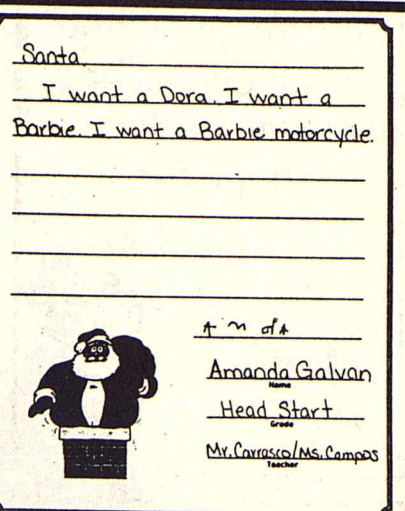 Santa
I want a Dora. I want a
Barbie. I want a Barbie motorcycle.
Amanda Galvan
Name
Head Start
Grade
Mr. Carrasco/Ms. Campos
Teacher